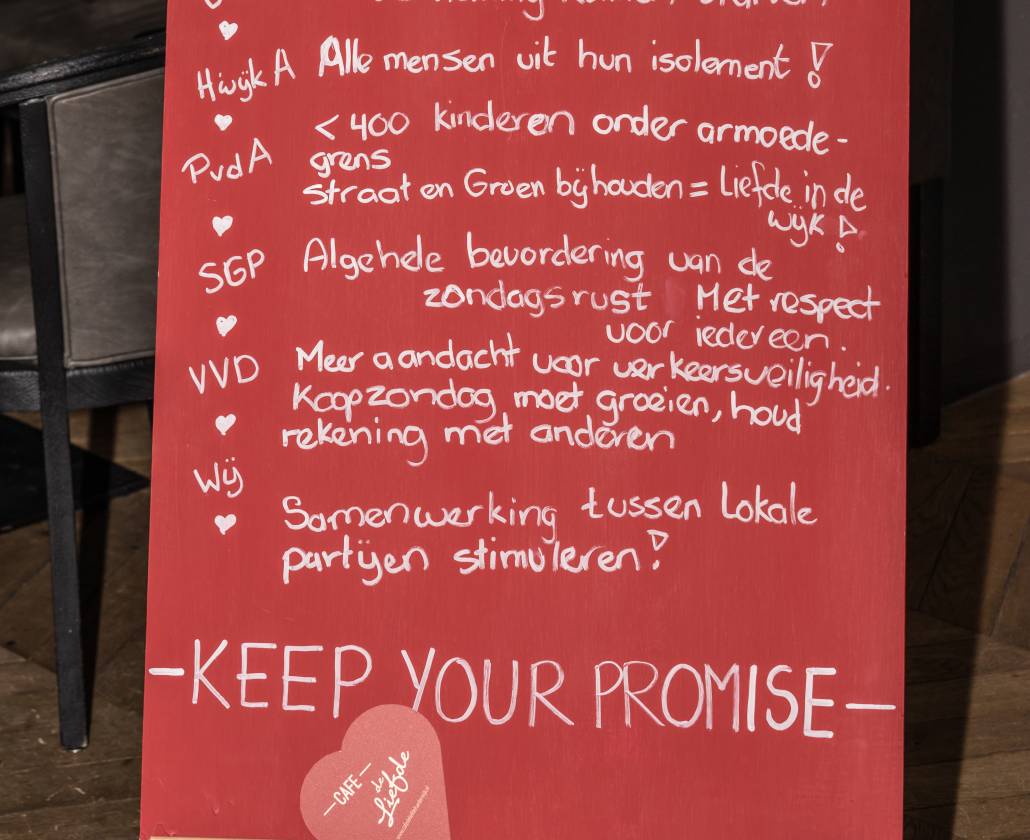 HwijkA Alle mensen uit hun isolement!
PvdA < 400 kinderen onder armoede-
grens
straat en Groen bijhouden = Liefde in de
wijk!
SGP Algehele bevordering van de
zondagsrust Met respect
voor iedereen.
VVD Meer aandacht voor verkeersveiligheid.
Koopzondag moet groeien, houd
rekening met anderen
Wij
Samenwerking tussen Lokale
partijen stimuleren!
-KEEP YOUR PROMISE-
-CAFE-
de
Liefde